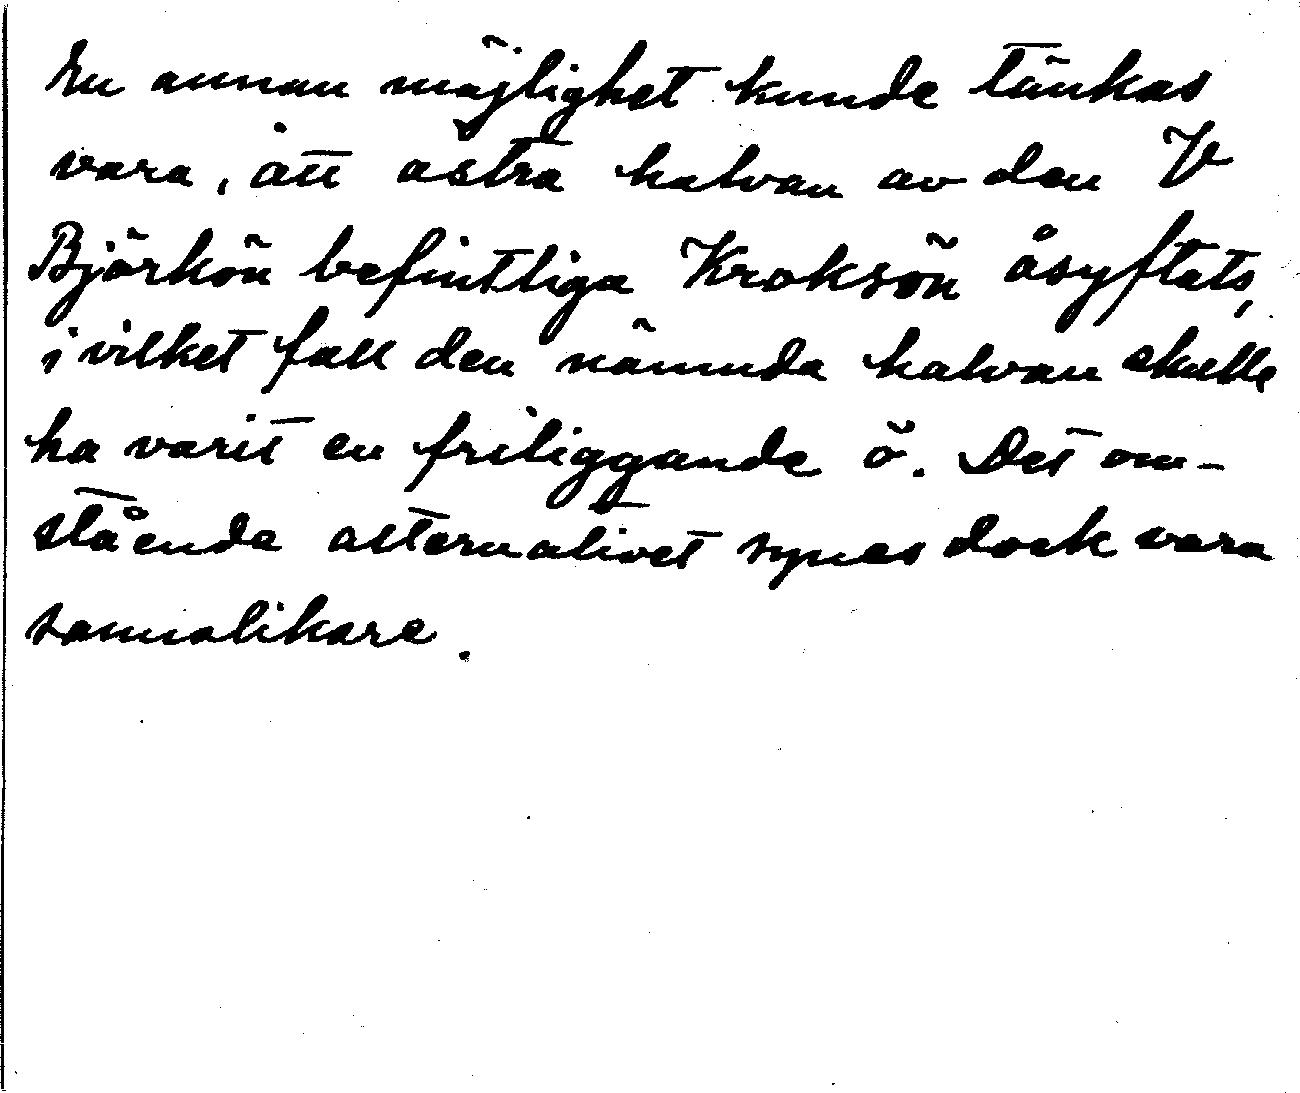 En annan möjlighet kunde tänkas
vara, att östra halvan av den V
Björkön befintliga Kroksön åsyftats,
i vilket fall den nämnda halvan skulle
ha varit en friliggande ö. Det om-
stående alternativet synes dock vara
sannolikare.